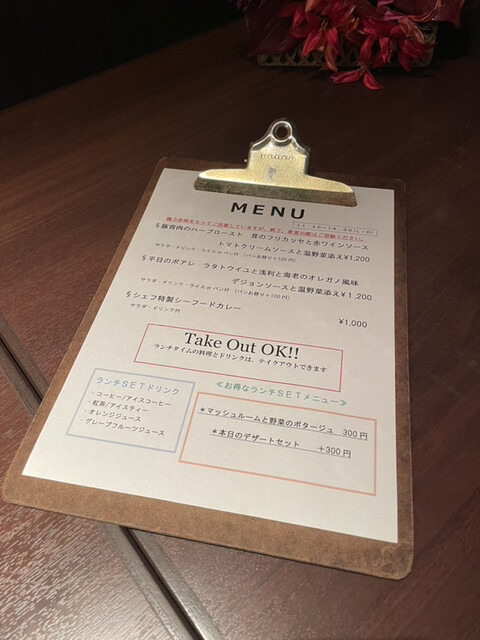 MENU
11:30～14:30(L.O)
極力余裕をもってご用意していますが、終了、変更の際はご容赦ください。
§豚肩肉のハーブロースト 茸のフリカッセと赤ワインソース
トマトクリームソースと温野菜添え¥1,200
サラダ・ドリンク・ライスorパン付 (パンお替り+100円)
§平目のポアレ ラタトウイユと浅利と海老のオレガノ風味
デジョンソースと温野菜添え¥1,200
サラダ・ドリンク・ライスorパン付 (パンお替り+100円)
§シェフ特製シーフードカレー
¥1,000
サラダ・ドリンク付
Take Out OK!!
ランチタイムの料理とドリンクは、テイクアウトできます
ランチSETドリンク
・コーヒー/アイスコーヒー
・紅茶/アイスティー
・オレンジジュース
グレープフルーツジュース
≪お得なランチSETメニュー≫
＊マッシュルームと野菜のポタージュ 300円
＊本日のデザートセット +300円